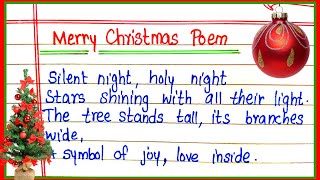 Merry Christmas Poem
Silent night, holy night
Stars shining with all their light.
The tree stands tall, its branches
wide,
symbol of joy, love inside.